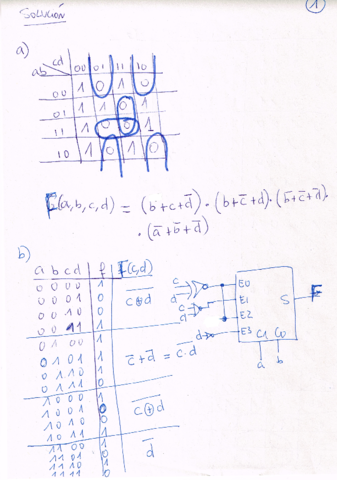 SOLUCIÓN
1
a)
cd
ab 00 01 11 10
00 1 0 1 0
01 1 1 0 1
11 1 0 0 1
10 1 0 1 0
F(a,b,c,d) = (b+c+d̅)·(b+c̅+d)·(b̅+c̅+d̅)·
·(a̅+b̅+d̅)
b)
a b c d f F(c,d)
0 0 0 0 1
0 0 0 1 0
0 0 1 0 0
0 0 1 1 1
c⊕d
0 1 0 0 1
0 1 0 1 1
0 1 1 0 1
0 1 1 1 0
c̅+d̅ = c·d
1 0 0 0 1
1 0 0 1 0
1 0 1 0 0
1 0 1 1 1
c⊕d
1 1 0 0 1
1 1 0 1 0
1 1 1 0 1
1 1 1 1 0
d̅
c
d
c
d
d
E0
E1
E2
E3
C1 C0
S
F
a b